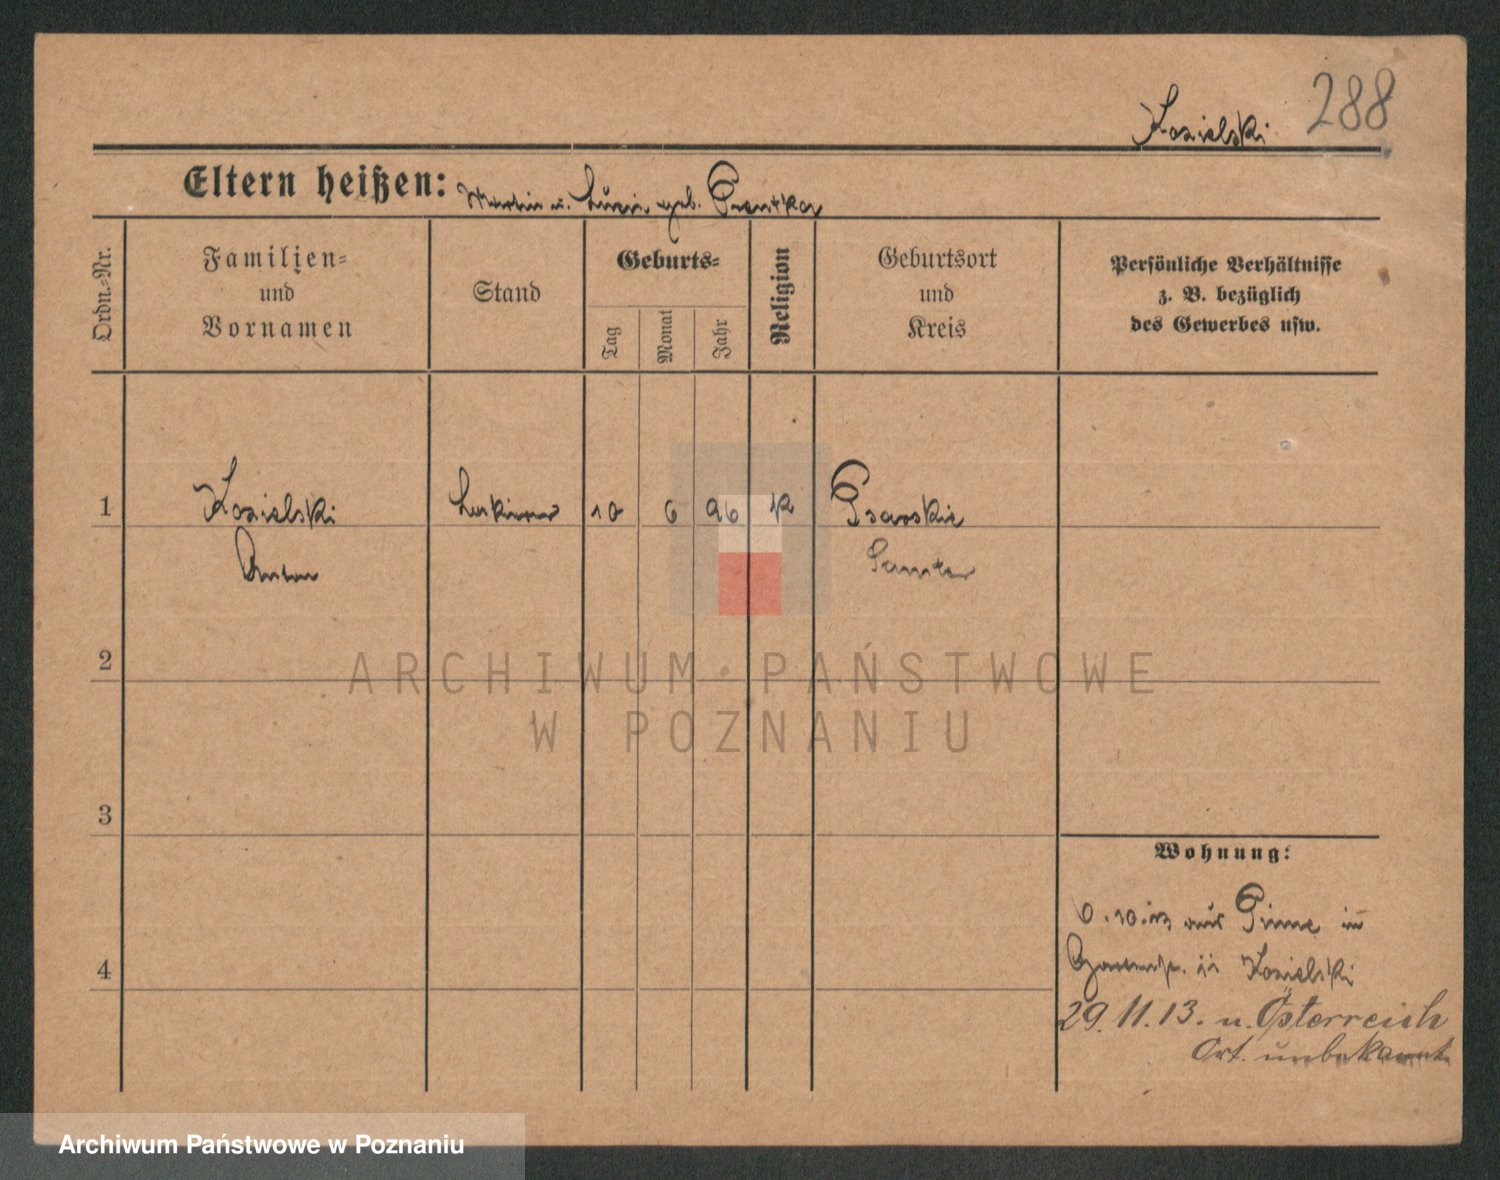 288
Kozielski
Eltern heißen: Martin u. geb.
Ordn.-Nr.
Familien-
und
Vornamen
Stand
Geburts-
Tag
Monat
Jahr
Religion
Geburtsort
und
Kreis
Persönliche Verhältnisse
z. B. bezüglich
des Gewerbes usw.
1
Kozielski
Anton
10 6 96 K
Psarskie
Samter
2
ARCHIWUM PAŃSTWOWE
W POZNANIU
3
4
Wohnung:
aus Pinne in
Kozielski
29. 11. 13. n. Österreich
Ort. unbekannt
Archiwum Państwowe w Poznaniu